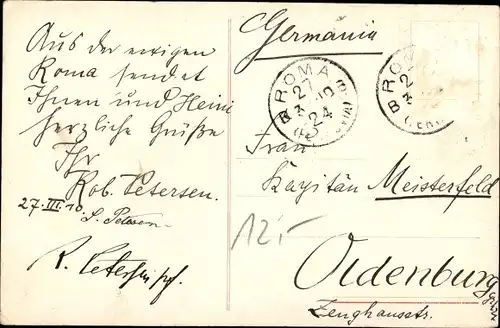 Aus der ewigen
Roma sendet
Ihnen und Heini
herzliche Grüße
Ihr
Rob. Petersen.
27. III. 10.
L. Petersen
R. Petersen
Germania
ROMA
27
3 10
24
ROMA
Frau
Kapitän Meisterfeld
12,-
Oldenburg